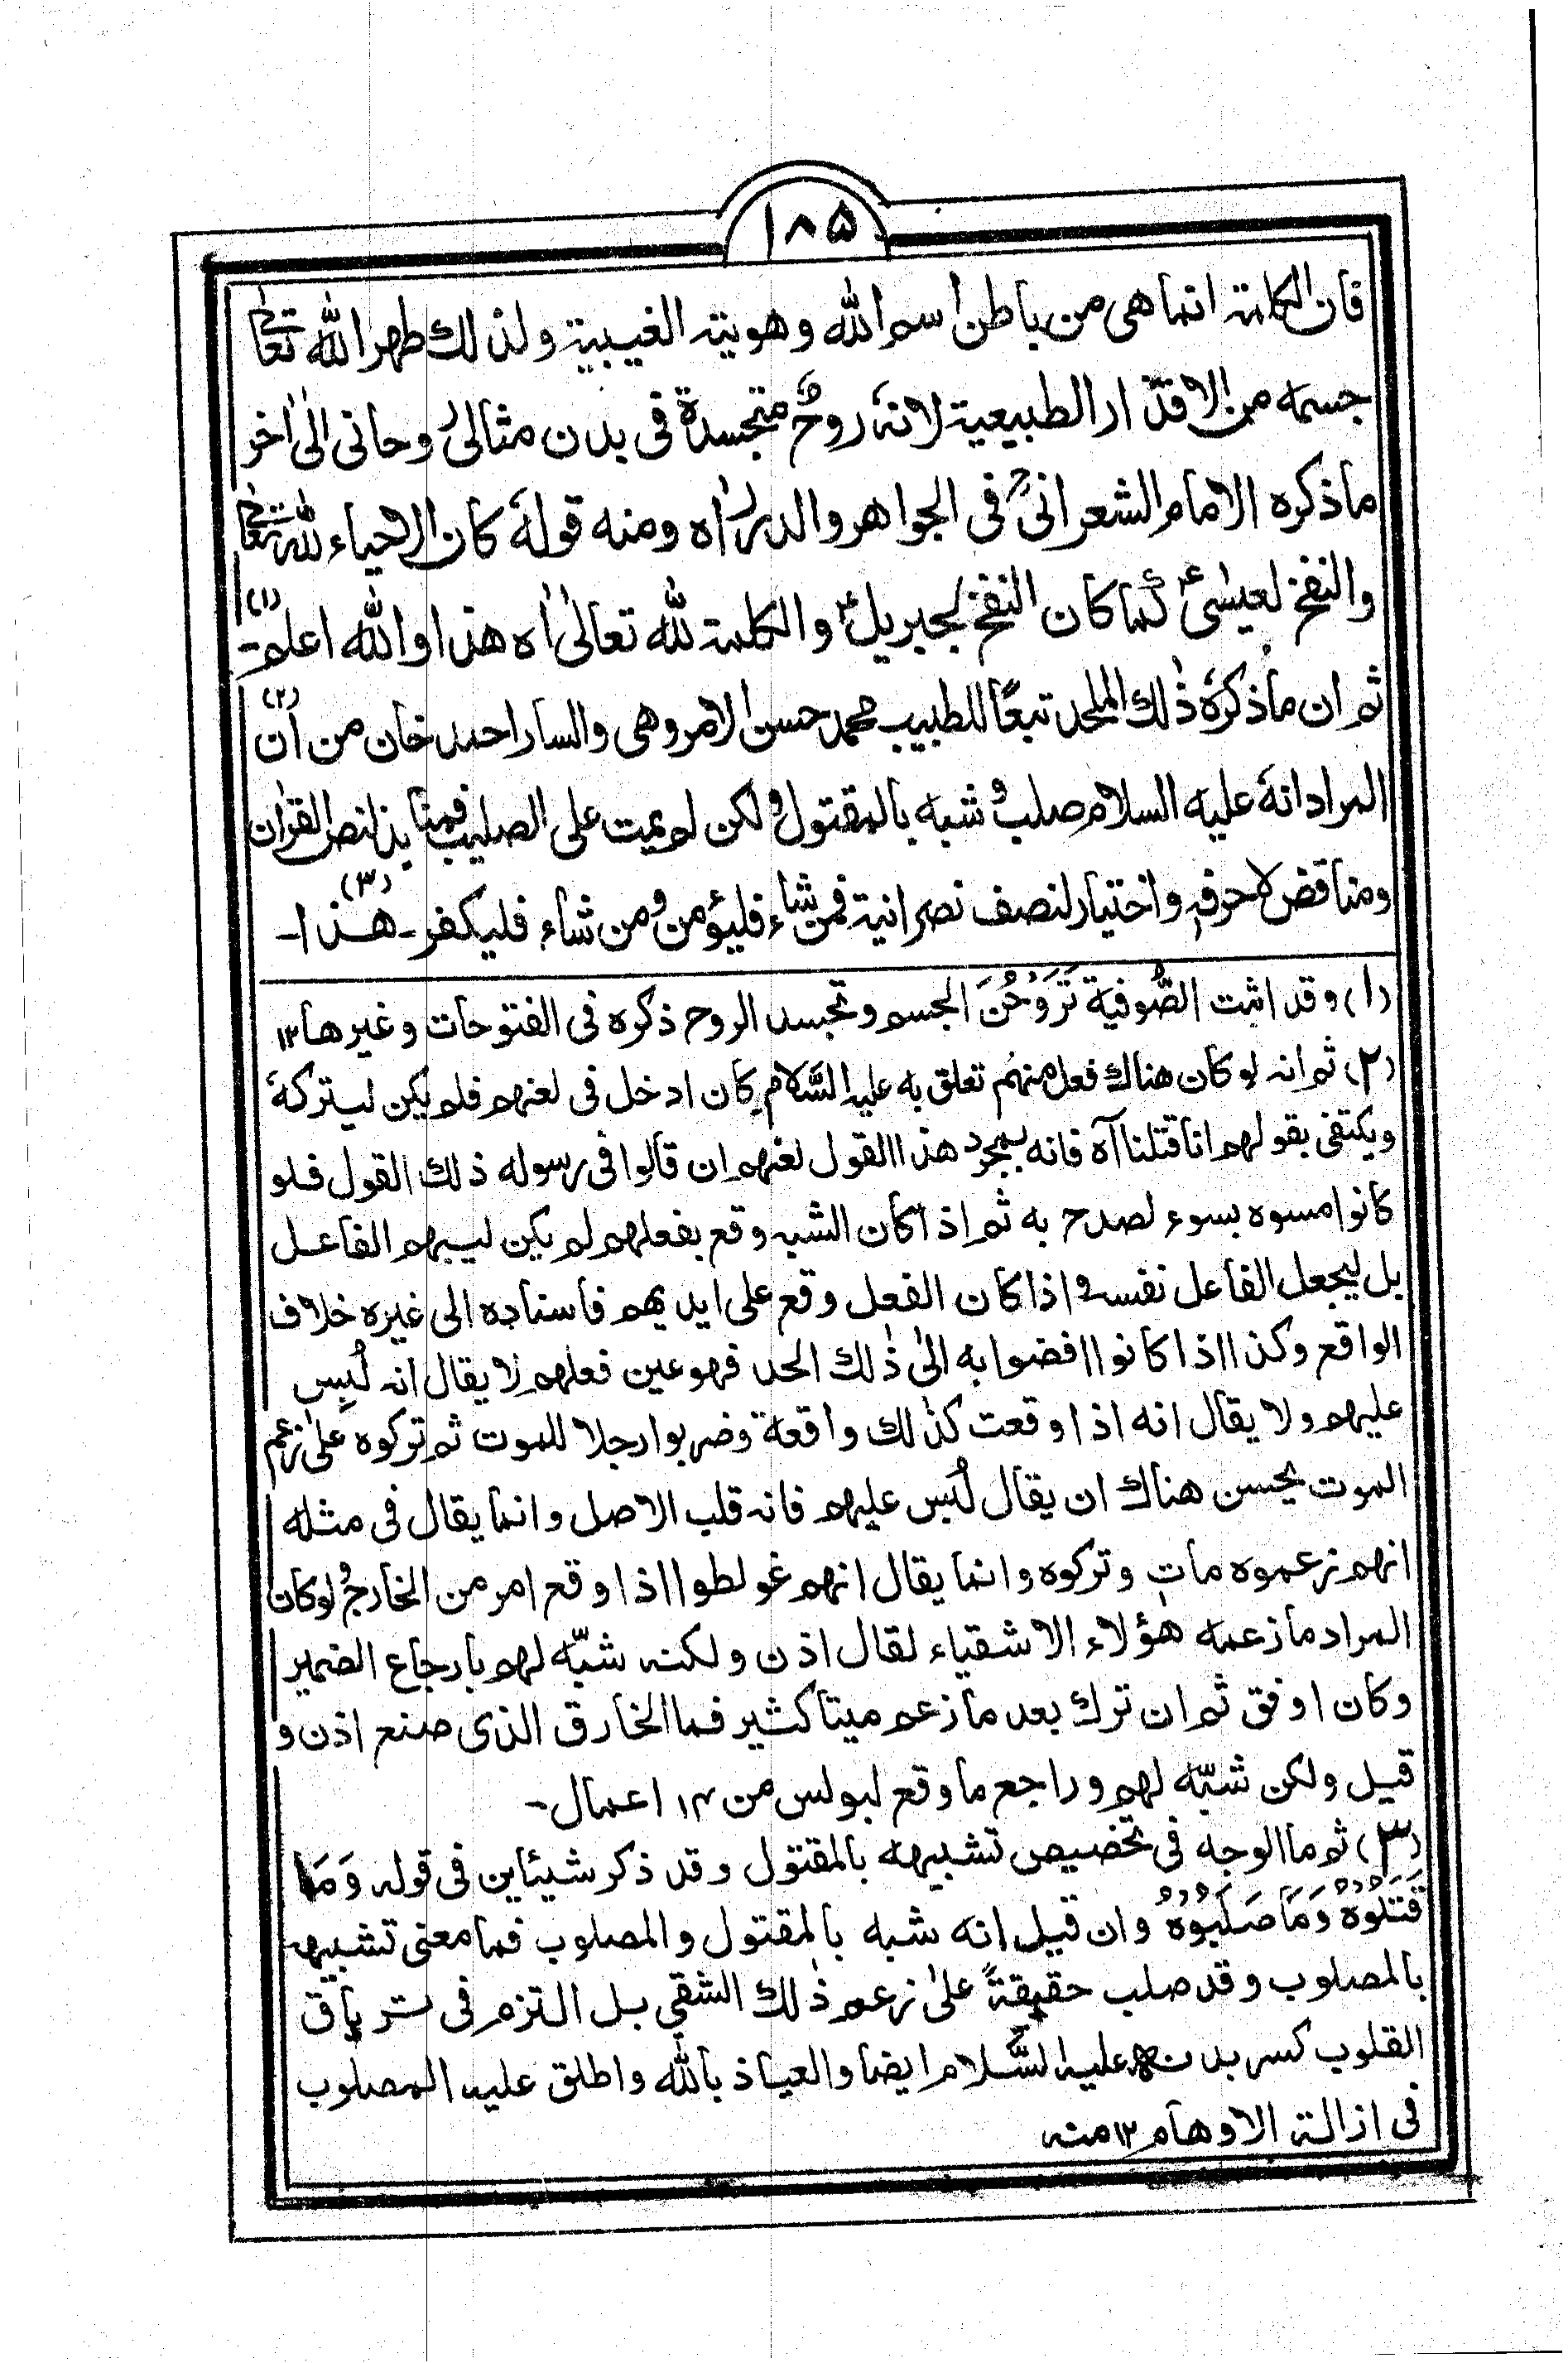 ١٨٥
فان الكلمة انما هى من باطن اسم الله وهويته الغيبية ولذلك طهر الله تعالىٰ
جسمه من الاقذار الطبيعية لانهٗ روحٌ متجسدة فى بدن مثالى روحانى الىٰ اٰخر
ماذكره الامام الشعرانىؒ فى الجواهر والدرر اه ومنه قولهٗ كان الاحياء لله تعالىٰ
والنفخ لعيسىٰؑ كما كان النفخ لجبريلؑ والكلمة لله تعالىٰ اه هذا والله اعلم۔(١)
ثم ان ماذكرهٗ ذٰلك الملحد تبعًا للطبيب محمد حسن الامروهى والسار احمد خان من ان(٢)
المراد انهٗ عليه السلام صلب و شبه بالمقتول و لكن لم يمت على الصليب فمنابذ لنص القراٰن
ومناقض لاحرفهٖ واختيار لنصف نصرانية فمن شاء فليؤمن و من شاء فليكفر۔ هٰذا۔(٣)
(١) وقد اثبت الصُّوفية تَرَوْحُنَ الجسم وتجسد الروح ذكره فى الفتوحات وغيرها ١٢
(٢) ثم انه لو كان هناك فعل منهم تعلق به عليه السَّلام كان ادخل فى لعنهم فلم يكن ليتركهٗ
ويكتفى بقولهم انا قتلنا آه فانه بمجرد هذا القول لعنهم ان قالوا فى رسوله ذلك القول فلو
كانوا مسوه بسوء لصدح به ثم اذا كان الشبه وقع بفعلهم لم يكن ليبهم الفاعل
بل ليجعل الفاعل نفسه و اذا كان الفعل وقع على ايديهم فاسناده الى غيره خلاف
الواقع وكذا اذا كانوا افضوا به الىٰ ذٰلك الحد فهو عين فعلهم لا يقال انه لُبِس
عليهم ولا يقال انه اذا وقعت كذٰلك واقعة وضربوا رجلا للموت ثم تركوه علىٰ زعم
الموت يحسن هناك ان يقال لُبِس عليهم فانه قلب الاصل وانما يقال فى مثله
انهم زعموه مات وتركوه وانما يقال انهم غولطوا اذا وقع امر من الخارج و لو كان
المراد مازعمه هؤلاء الاشقياء لقال اذن ولكنه شبّه لهم بارجاع الضمير
وكان اوفق ثم ان ترك بعد مازعم ميتا كثير فما الخارق الذى صنع اذن و
قيل ولكن شبّه لهم وراجع ماوقع لبولس من ١٤ اعمال۔
(٣) ثم ما الوجه فى تخصيص تشبيهه بالمقتول وقد ذكر شيئاين فى قوله وَمَا
قَتَلُوْهُ وَمَا صَلَبُوْهُ وان قيل انه شبه بالمقتول والمصلوب فما معنى تشبيهه
بالمصلوب وقد صلب حقيقةً علىٰ زعم ذٰلك الشقى بل التزم فى ترياق
القلوب كسر بدنه عليه السَّلام ايضا والعياذ بالله واطلق عليه المصلوب
فى ازالة الاوهام ١٢ منه